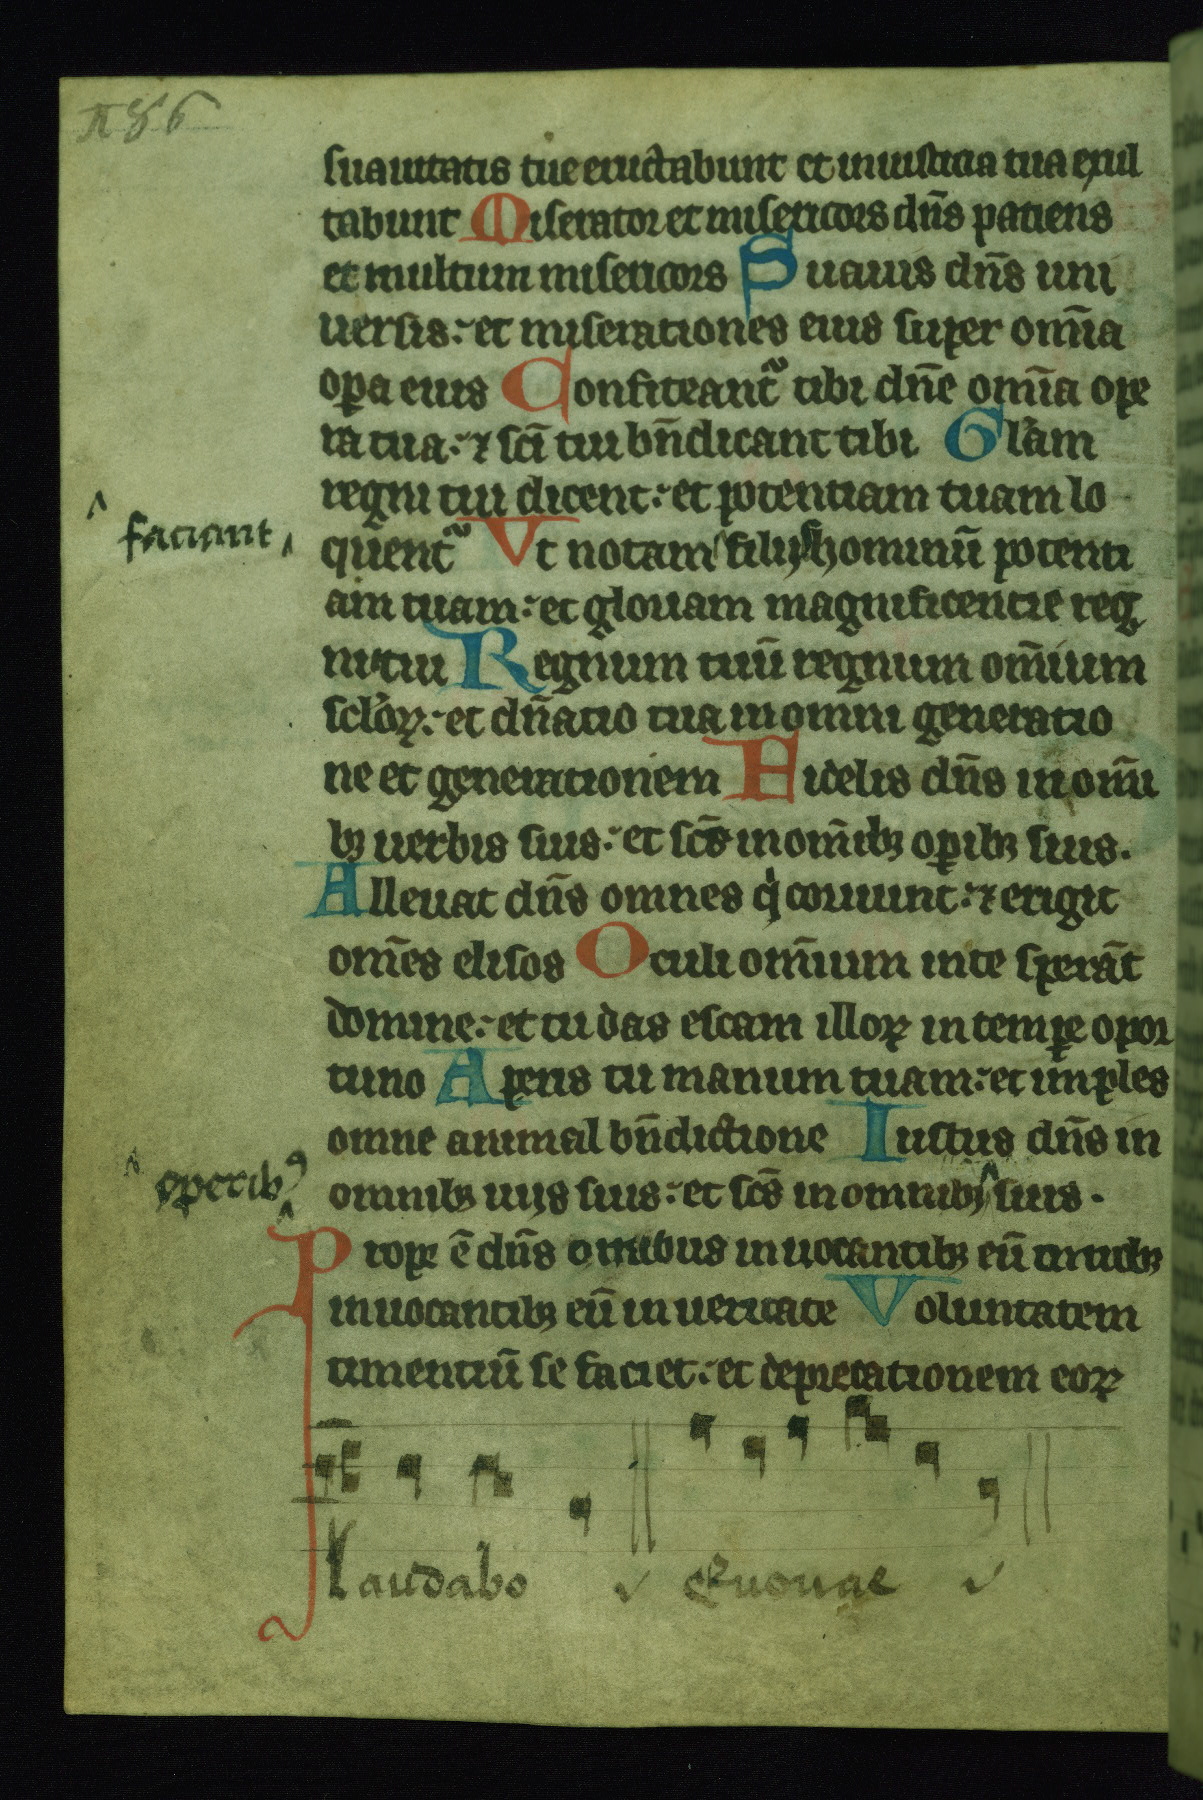 suauitatis tue eructabunt et in iusticia tua exul
tabunt Miserator et misericors dn̄s patiens
et multum misericors Suauis dn̄s uni
uersis: et miserationes eius super om̄ia
oꝑa eius Confiteant᷑ tibi dn̄e om̄ia ope
ra tua: ⁊ sc̄i tui bn̄dicant tibi Gl̄am
regni tui dicent: et potentiam tuam lo
faciant
quent᷑ Vt notam filijs hominū potenti
am tuam: et gloriam magnificentie reg
ni tui Regnum tuū regnum om̄ium
sc̄loꝝ: et dn̄atio tua in omni generatio
ne et generationem Fidelis dn̄s in om̄i
bꝫ uerbis suis: et sc̄s in om̄ibꝫ oꝑibꝫ suis.
Alleuat dn̄s omnes q̇ corruunt: ⁊ erigit
om̄es elisos Oculi om̄ium in te sperāt
domine: et tu das escam illoꝝ in tempore opor
tuno Aperis tu manum tuam: et imples
omne animal bn̄dictione Iustus dn̄s in
operibꝰ
omnibꝫ uijs suis: et sc̄s in omnibꝫ suis.
Prope ē dn̄s omnibus inuocantibꝫ eū omnibꝫ
inuocantibꝫ eū in ueritate Voluntatem
timentiū se faciet: et deprecationem eoꝝ
Laudabo Euouae